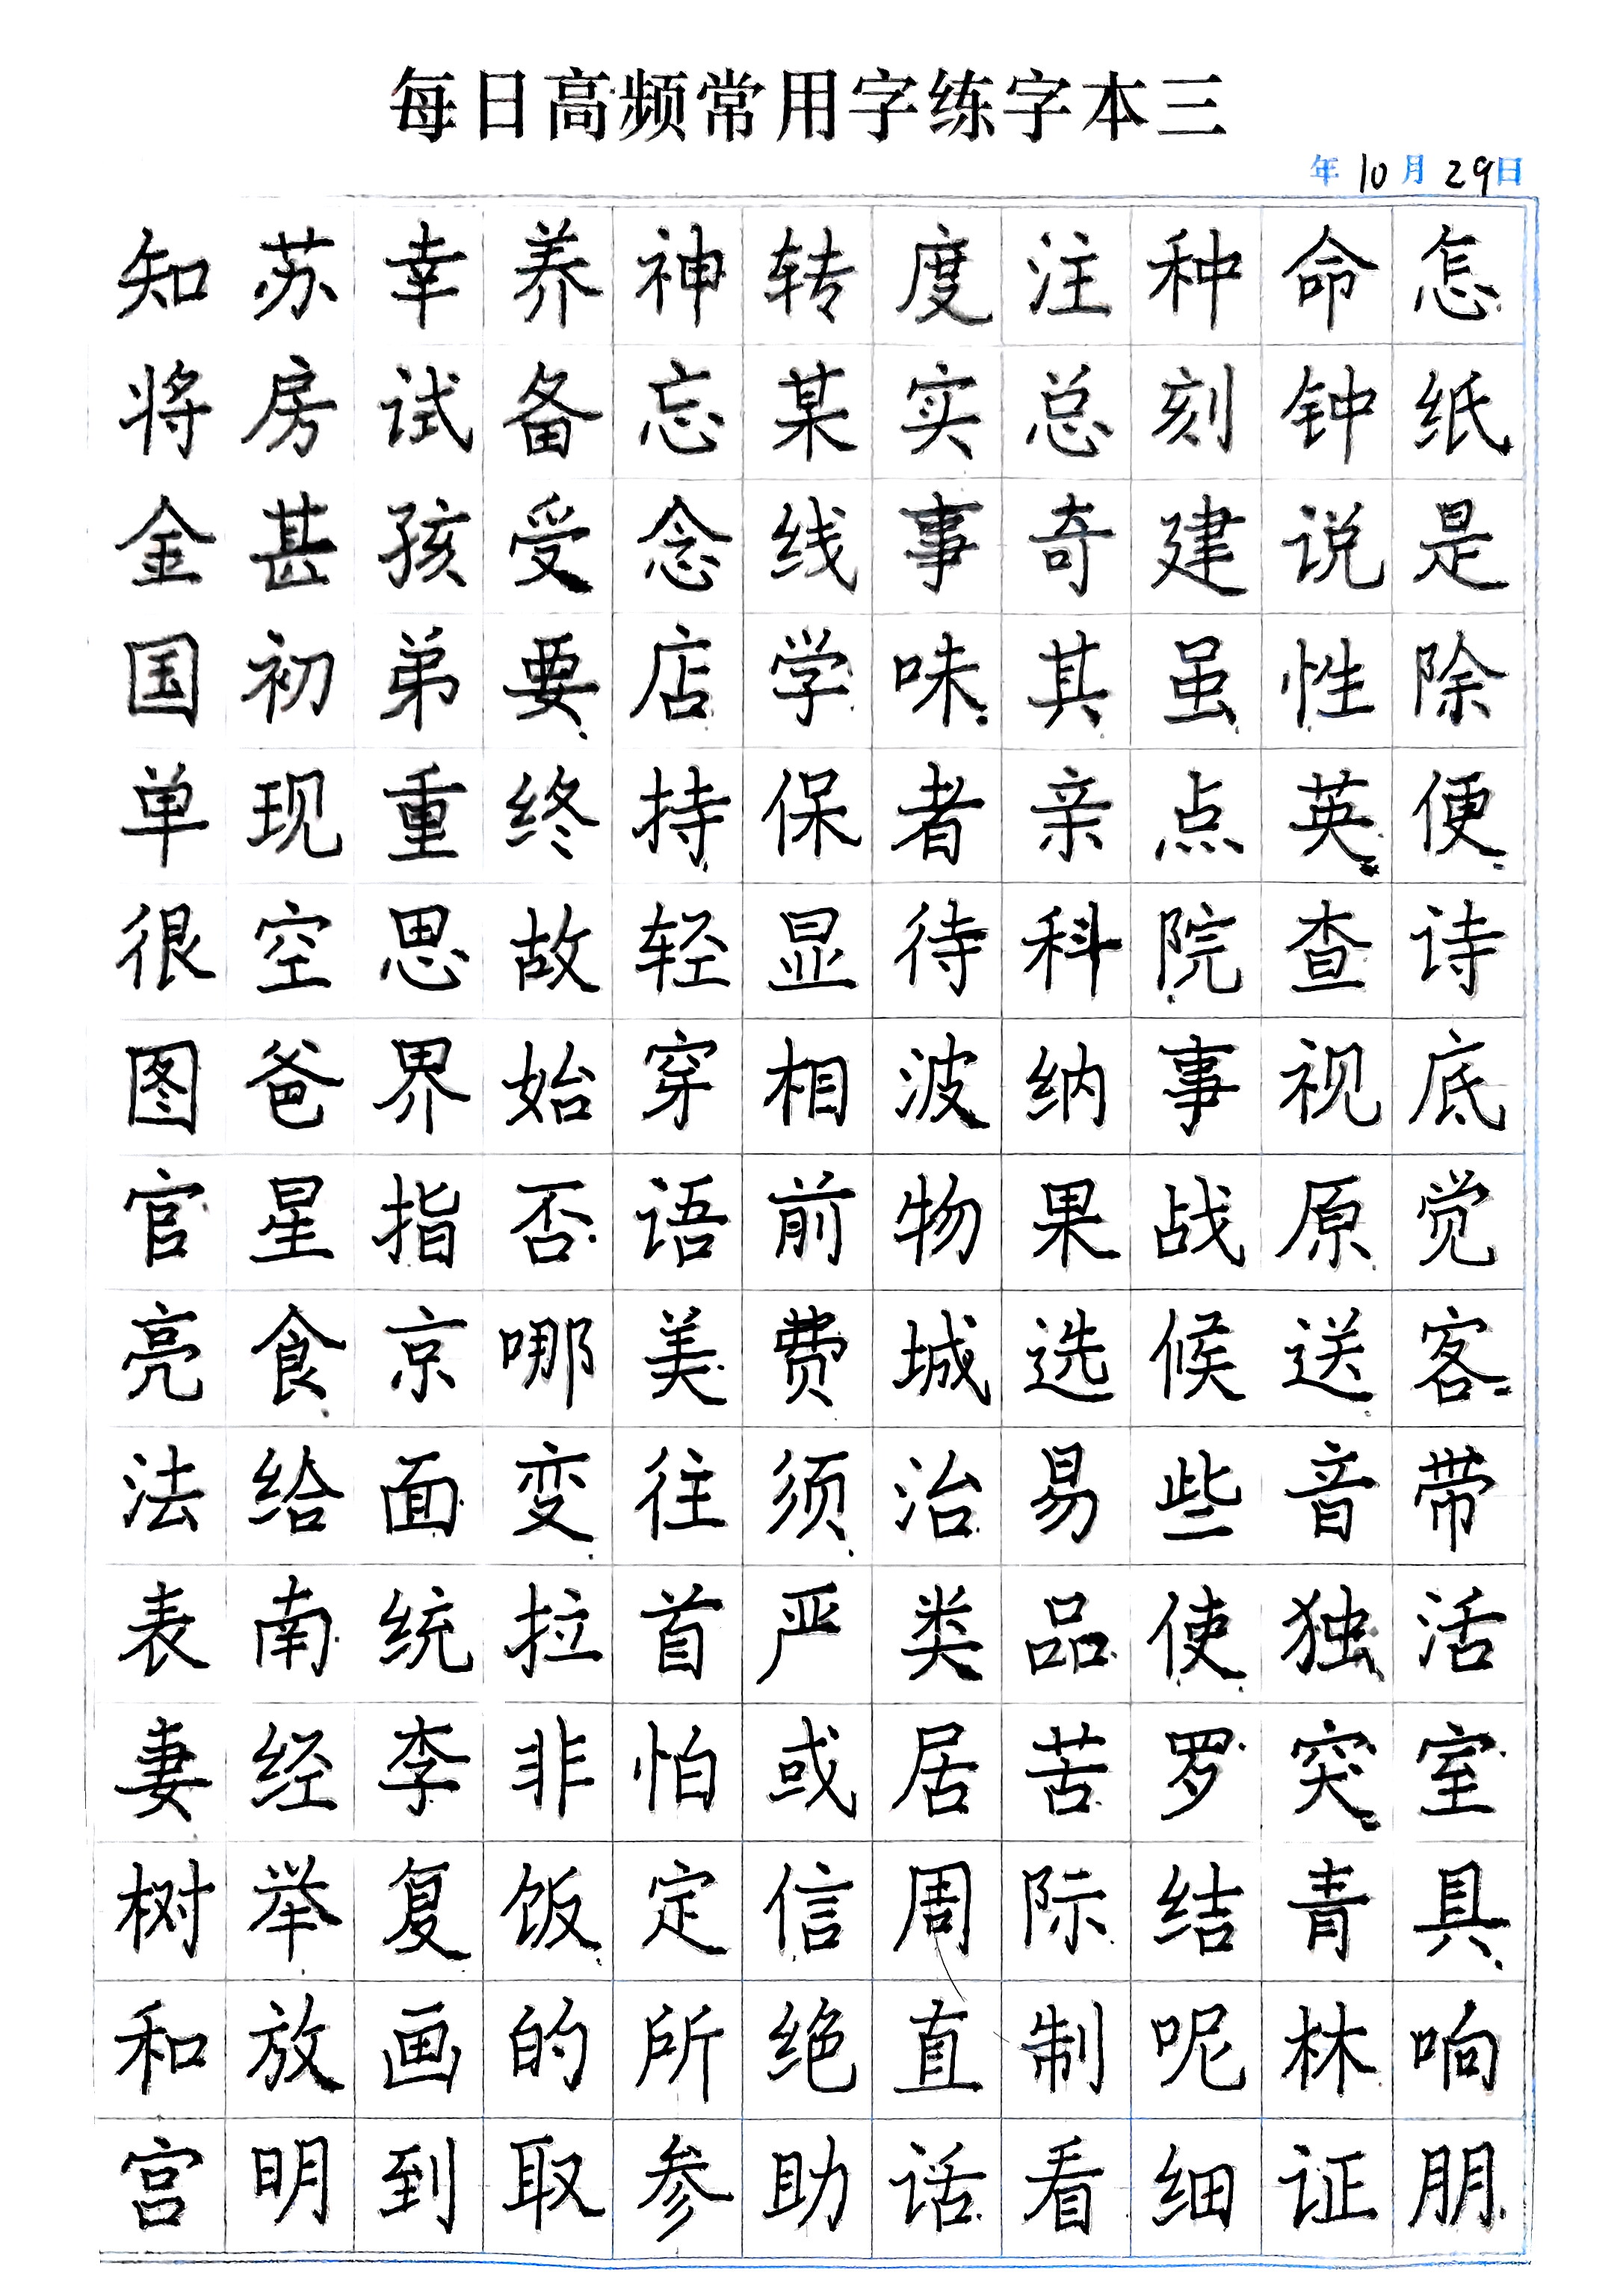 每日高频常用字练字本三
年 10 月 29 日
知苏幸养神转度注种命怎
将房试备忘某实总刻钟纸
金甚孩受念线事奇建说是
国初弟要店学味其虽性除
单现重终持保者亲点英便
很空思故轻显待科院查诗
图爸界始穿相波纳事视底
官星指否语前物果战原觉
亮食京哪美费城选候送客
法给面变往须治易些音带
表南统拉首严类品使独活
妻经李非怕或居苦罗突室
树举复饭定信周际结青具
和放画的所绝直制呢林响
宫明到取参助话看细证朋